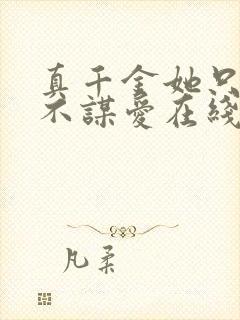 真千金她只
不謀愛在綫
凡柔